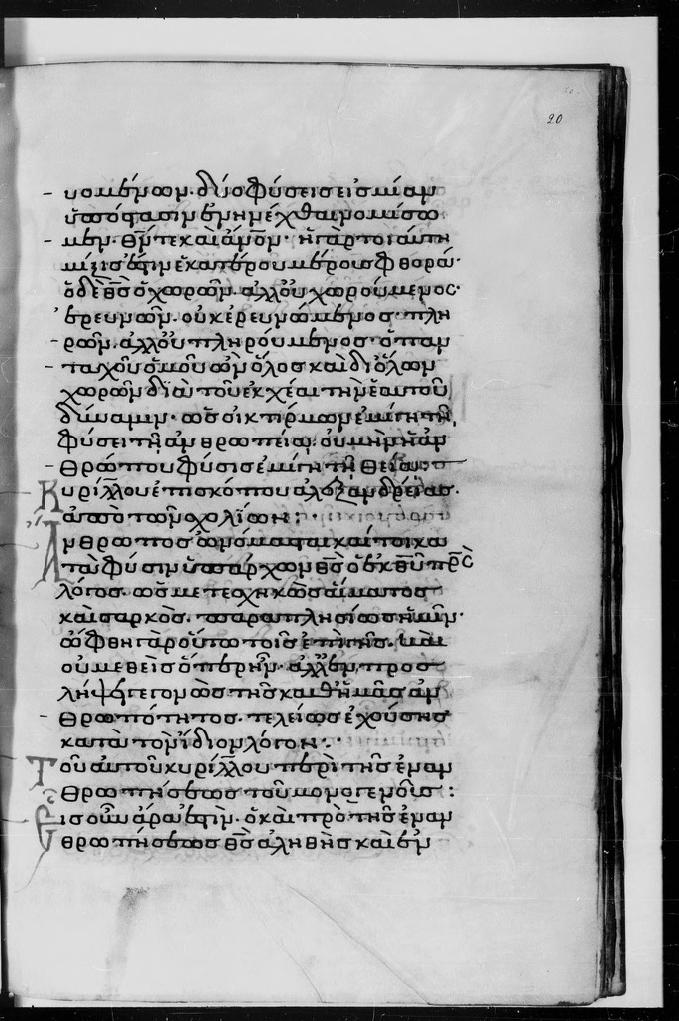 20
νομένων· δύο φύσεις εἰς μίαν
ὑπόστασιν ἐνηνέχθαι νομίσω
μεν· θν̅ τε καὶ ἀν̅ο̅ν· ἡ γάρ τοιαύτη
μίξις ἐστιν ἑκατέρου μέρους φθορά·
ὁ δὲ θ̅ς̅ ὁ χωρῶν. ἀλλ' οὐ χωρούμενος·
ἐρευνῶν. οὐκ ἐρευνώμενος· πλη
ρῶν. ἀλλ' οὐ πληρούμενος· ὁ παν
ταχοῦ ὁμοῦ ὢν ὅλος καὶ δι' ὅλων
χωρῶν διὰ τοῦ ἐκχέαι τὴν ἑαυτοῦ
δύναμιν· ὡς οἰκτίρμων ἐμίγη τῆ
φύσει τῆ ἀνθρωπεία. οὐ μὴν ἡ ἀν
θρώπου φύσις ἐμίγη τῆ θεία:
Κυρίλλου ἐπισκόπου ἀλεξανδρείας·
ἀπὸ τῶν σχολίων:
Ἄνθρωπος ὠνόμασται καίτοι κα
τὰ φύσιν ὑπάρχων θ̅ς̅ ὁ ἐκ θ̅υ̅ π̅ρ̅ς̅
λόγος. ὡς μετεσχηκὼς αἵματος
καὶ σαρκὸς. παραπλησίως ἡμῖν·
ὤφθη γὰρ οὕτω τοῖς ἐπὶ γῆς.
οὐ μεθεὶς ὅπερ ἦν· ἀλλ' ἐν προσ
λήψει γεγονὼς τῆς καθ' ἡμᾶς ἀν
θρωπότητος. τελείως ἐχούσης
κατὰ τὸν ἴδιον λόγον:
Τοῦ αὐτοῦ κυρίλλου περὶ τῆς ἐναν
θρωπήσεως τοῦ μονογενοῦς:
Εἷς οὖν ἄρα ἐστιν. ὁ καὶ πρὸ τῆς ἐναν
θρωπήσεως θ̅ς̅ ἀληθὴς καὶ ἐν